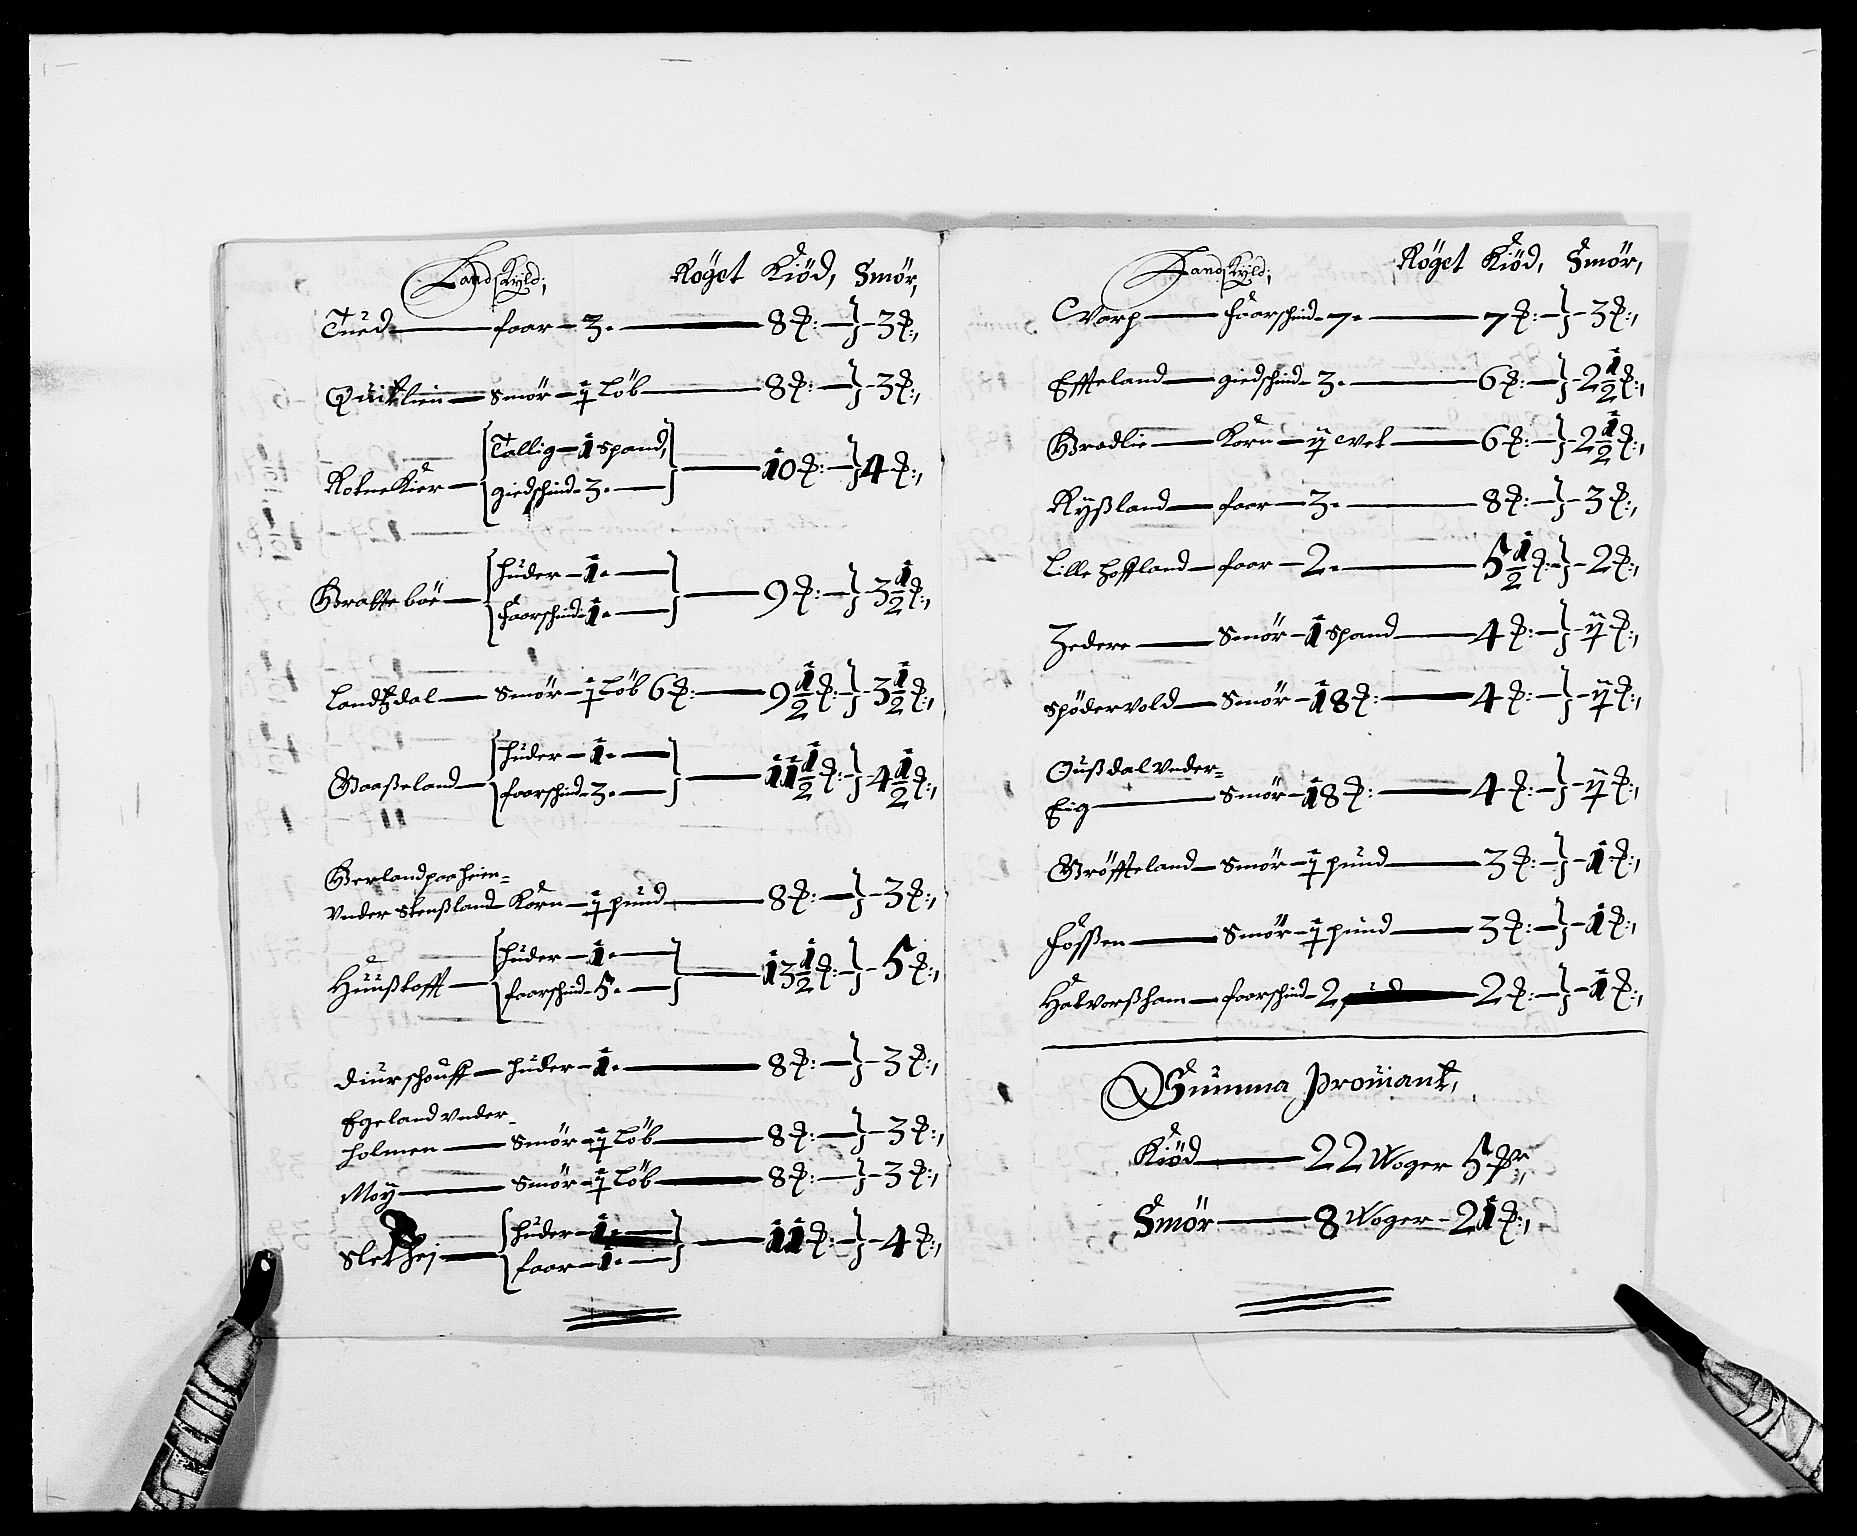 Landskyld; Röget Kiöd, Smör,
Tued faar 3. 8 ℔: 3 ℔:,
Quitlien Smör ½ Löb 8 ℔: 3 ℔:,
Rotnekier Tallig 1 Spand, giedschind 3. 10 ℔: 4 ℔:,
Bratteböe huder 1. faarschind 1. 9 ℔: 3½ ℔:,
Landtzdal Smör ½ Löb 6 ℔: 9½ ℔: 3½ ℔:,
Gaaßeland huder 1. faarschind 3. 11½ ℔: 4½ ℔:,
Berland paa heien=
vnder Stenßland Korn ½ pund 8 ℔: 3 ℔:,
Huußtofft huder 1. faarschind 5. 13½ ℔: 5 ℔:,
Diurschouff huder 1. 8 ℔: 3 ℔:,
Egeland vnder
holmen Smör ½ Löb 8 ℔: 3 ℔:,
Moy Smör ½ Löb 8 ℔: 3 ℔:,
Slethej huder 1. faar 1. 11 ℔: 4 ℔:,
Landskyld; Röget Kiöd, Smör,
Warp faarschind 7. 7 ℔: 3 ℔:,
Effteland giedschind 3. 6 ℔: 2½ ℔:,
Bradlie Korn ij wet 6 ℔: 2½ ℔:,
Ryßland faar 3. 8 ℔: 3 ℔:,
Lille hoffland faar 2. 5½ ℔: 2 ℔:,
Zedere Smör 1 Spand 4 ℔: ij ℔:,
Spödervold Smör 18 ℔: 4 ℔: ij ℔:,
Oußdal vnder=
Eig Smör 18 ℔: 4 ℔: ij ℔:,
Gröffteland Smör ½ pund 3 ℔: 1 ℔:,
Foßen Smör ½ pund 3 ℔: 1 ℔:,
Halvorßham faarschind 2, 2 ℔: 1 ℔:,
Summa Proviant,
Kiöd 22 Woger 5 ℔:,
Smör 8 Woger 21 ℔:,